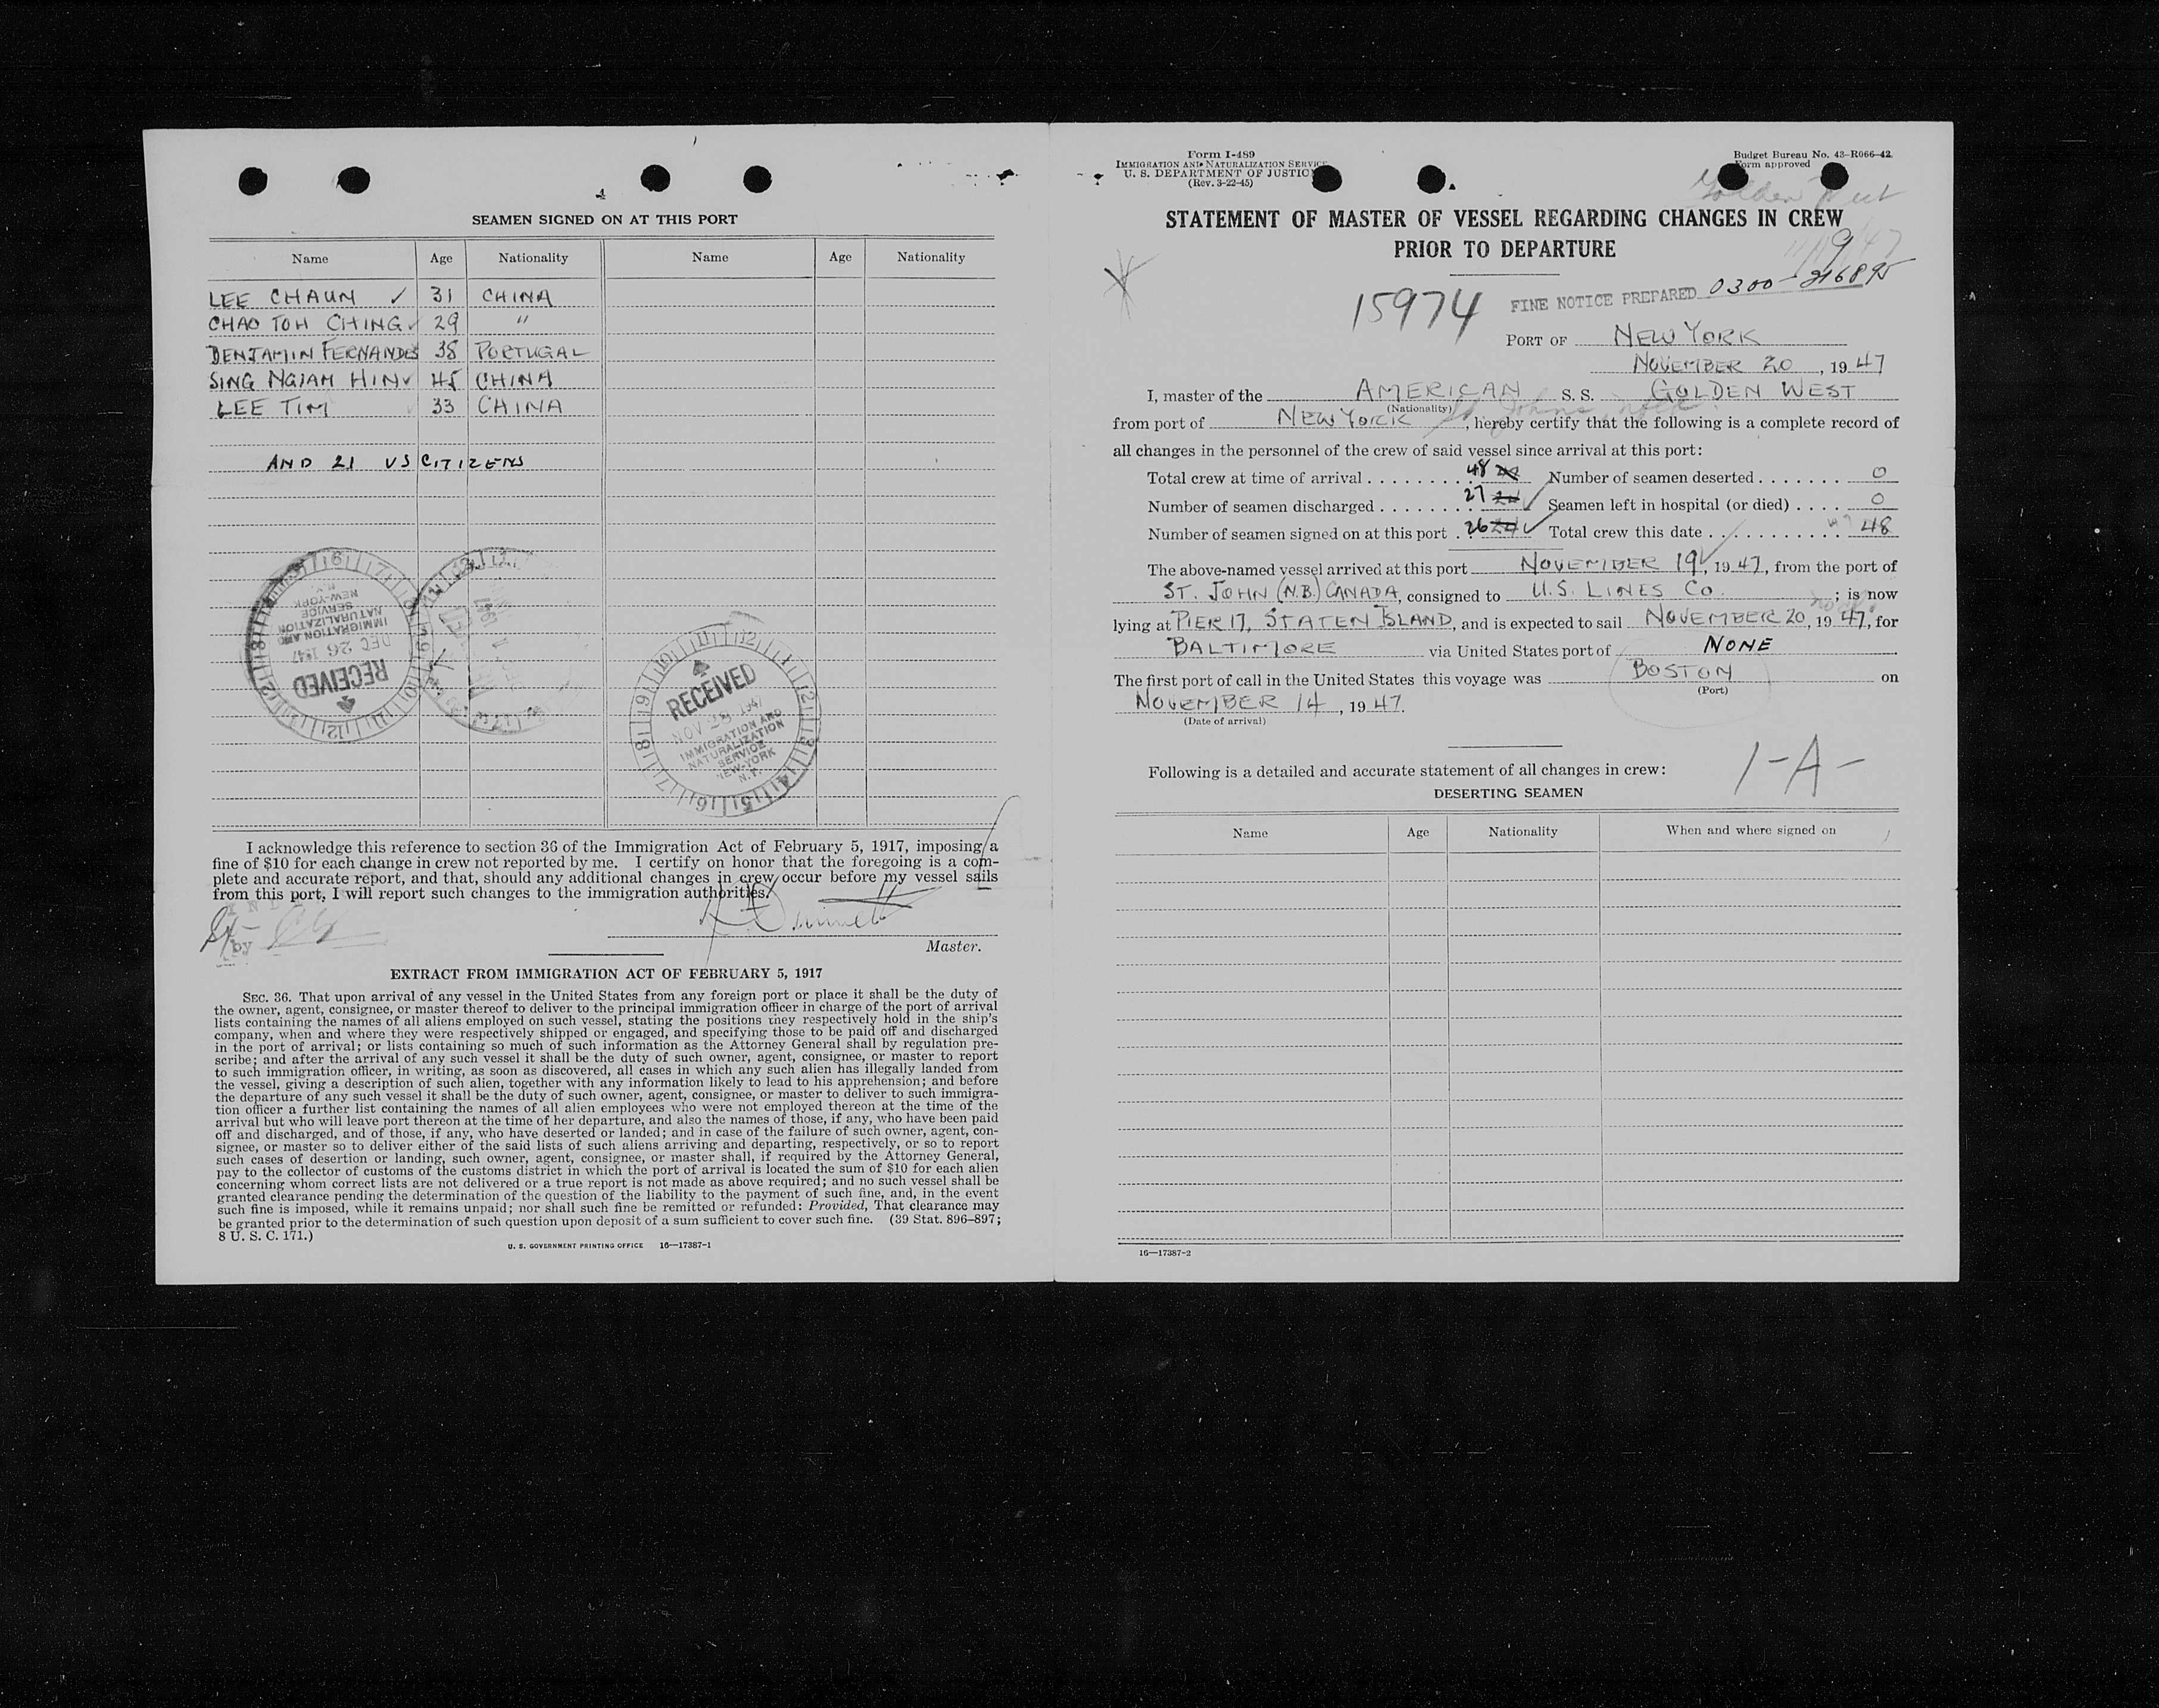 SEAMEN SIGNED ON AT THIS PORT
Name Age Nationality Name Age Nationality
LEE CHAUN ✓ 31 CHINA
CHAO TOH CHING ✓ 29 "
BENJAMIN FERNANDES 38 PORTUGAL
SING NGIAM HIN ✓ 45 CHINA
LEE TIM 33 CHINA
AND 21 US CITIZENS
RECEIVED
DEC 26 1947
IMMIGRATION AND
NATURALIZATION
SERVICE
NEW-YORK
N.Y.
RECEIVED
NOV 1947
IMMIGRATION AND
NATURALIZATION
SERVICE
NEW-YORK
N.Y.
I acknowledge this reference to section 36 of the Immigration Act of February 5, 1917, imposing a
fine of $10 for each change in crew not reported by me. I certify on honor that the foregoing is a com-
plete and accurate report, and that, should any additional changes in crew occur before my vessel sails
from this port, I will report such changes to the immigration authorities.
by
Master.
EXTRACT FROM IMMIGRATION ACT OF FEBRUARY 5, 1917
SEC. 36. That upon arrival of any vessel in the United States from any foreign port or place it shall be the duty of
the owner, agent, consignee, or master thereof to deliver to the principal immigration officer in charge of the port of arrival
lists containing the names of all aliens employed on such vessel, stating the positions they respectively hold in the ship's
company, when and where they were respectively shipped or engaged, and specifying those to be paid off and discharged
in the port of arrival; or lists containing so much of such information as the Attorney General shall by regulation pre-
scribe; and after the arrival of any such vessel it shall be the duty of such owner, agent, consignee, or master to report
to such immigration officer, in writing, as soon as discovered, all cases in which any such alien has illegally landed from
the vessel, giving a description of such alien, together with any information likely to lead to his apprehension; and before
the departure of any such vessel it shall be the duty of such owner, agent, consignee, or master to deliver to such immigra-
tion officer a further list containing the names of all alien employees who were not employed thereon at the time of the
arrival but who will leave port thereon at the time of her departure, and also the names of those, if any, who have been paid
off and discharged, and of those, if any, who have deserted or landed; and in case of the failure of such owner, agent, con-
signee, or master so to deliver either of the said lists of such aliens arriving and departing, respectively, or so to report
such cases of desertion or landing, such owner, agent, consignee, or master shall, if required by the Attorney General,
pay to the collector of customs of the customs district in which the port of arrival is located the sum of $10 for each alien
concerning whom correct lists are not delivered or a true report is not made as above required; and no such vessel shall be
granted clearance pending the determination of the question of the liability to the payment of such fine, and, in the event
such fine is imposed, while it remains unpaid; nor shall such fine be remitted or refunded: Provided, That clearance may
be granted prior to the determination of such question upon deposit of a sum sufficient to cover such fine. (39 Stat. 896–897;
8 U. S. C. 171.)
U. S. GOVERNMENT PRINTING OFFICE 16—17387-1
Form I-489
IMMIGRATION AND NATURALIZATION SERVICE
U. S. DEPARTMENT OF JUSTICE
(Rev. 3-22-45)
Budget Bureau No. 43-R066-42.
Form approved
Golden West
STATEMENT OF MASTER OF VESSEL REGARDING CHANGES IN CREW
PRIOR TO DEPARTURE
15974 FINE NOTICE PREPARED 0300-
PORT OF NEW YORK
NOVEMBER 20, 1947
I, master of the AMERICAN S. S. GOLDEN WEST
(Nationality)
from port of NEW YORK, hereby certify that the following is a complete record of
all changes in the personnel of the crew of said vessel since arrival at this port:
Total crew at time of arrival 48 Number of seamen deserted 0
Number of seamen discharged 27 Seamen left in hospital (or died) 0
Number of seamen signed on at this port 26 24 ✓ Total crew this date 48
The above-named vessel arrived at this port NOVEMBER 19, 1947, from the port of
ST. JOHN (N.B.) CANADA, consigned to U.S. LINES CO. ; is now
lying at PIER 17, STATEN ISLAND, and is expected to sail NOVEMBER 20, 1947, for
BALTIMORE via United States port of NONE
The first port of call in the United States this voyage was BOSTON on
(Port)
NOVEMBER 14, 1947.
(Date of arrival)
1-A-
Following is a detailed and accurate statement of all changes in crew:
DESERTING SEAMEN
Name Age Nationality When and where signed on
16—17387-2